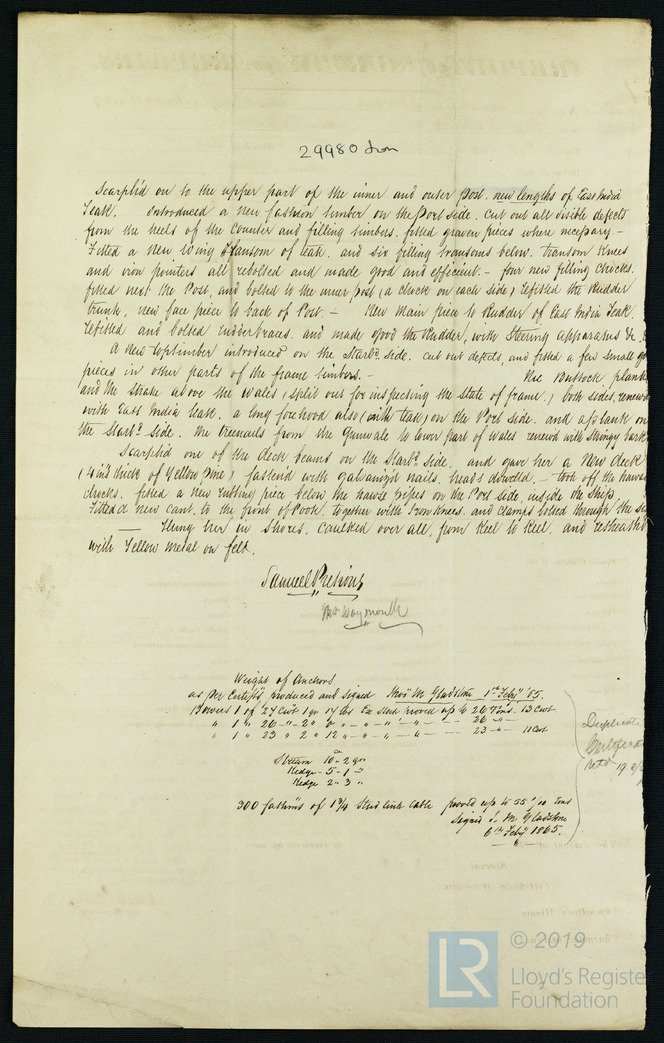 29980 Iron
Scarph'd on to the upper part of the inner and outer Post. new lengths of East India
Teak. Introduced a New fashion timber on the Port side. cut out all visible defects
from the heels of the Counter and filling timbers. fitted graven pieces where necessary –
Fitted a New Wing Transom of teak. and six filling transoms below. transom knees
and iron pointers all rebolted and made good and efficient. – four new filling chocks.
fitted next the Post, and bolted to the inner post (a chock on each side) refitted the Rudder
trunk, new face piece to back of Post – New Main piece to Rudder of East India Teak.
refitted and bolted rudder braces. and made good the Rudder, with Steering apparatus &c.
A New toptimber introduced on the Starbd side. cut out defects, and fitted a few small
pieces in other parts of the frame timbers. – The Buttock plank
and the Strake above the Wales (split out for inspecting the state of frame.) both sides, renew
with East India teak. a long forehood also (with teak) on the Port side. and a plank on
the Starbd side. the treenails from the Gunwale to lower part of Wales renewd with Stringy bark
Scarph'd one of the deck beams on the Starbd side. and gave her a New deck
(4 ins thick of Yellow Pine) fastend with galvanizd nails. heads dowelld. – took off the hawse
chocks. fitted a new rubbing piece below the hawse pipes on the Port side, inside the Ship
Fitted a new cant. to the front of Poop. together with Iron Knees. and clamps bolted through the
– Hung her in Shores. caulked over all, from Keel to Keel, and resheathd
with Yellow Metal on felt.
Samuel Pretious
Mr Waymouth
Weight of Anchors
as per Certifts produced and signed Thos M Gladstone 1st Feby '65.
Bowers 1 of 27 Cwt 1 qr 14 lbs Ex Stock proved up to 26 Tons. 13 Cwt
" 1 " 26 " 2 " 0 " " " " " 26 "
" 1 " 23 " 2 " 12 " " " " " 23 " 11 Cwt
Stream 10 " 2 qrs
Kedge – 5 – 1 "
Kedge 2 " 3 "
300 fathoms of 1 3/4 Stud link Cable proved up to 55 1/10 tons
Signed T. M Gladstone
6th Feby 1865.
Duplicate
© 2019
LR
Lloyd's Register
Foundation